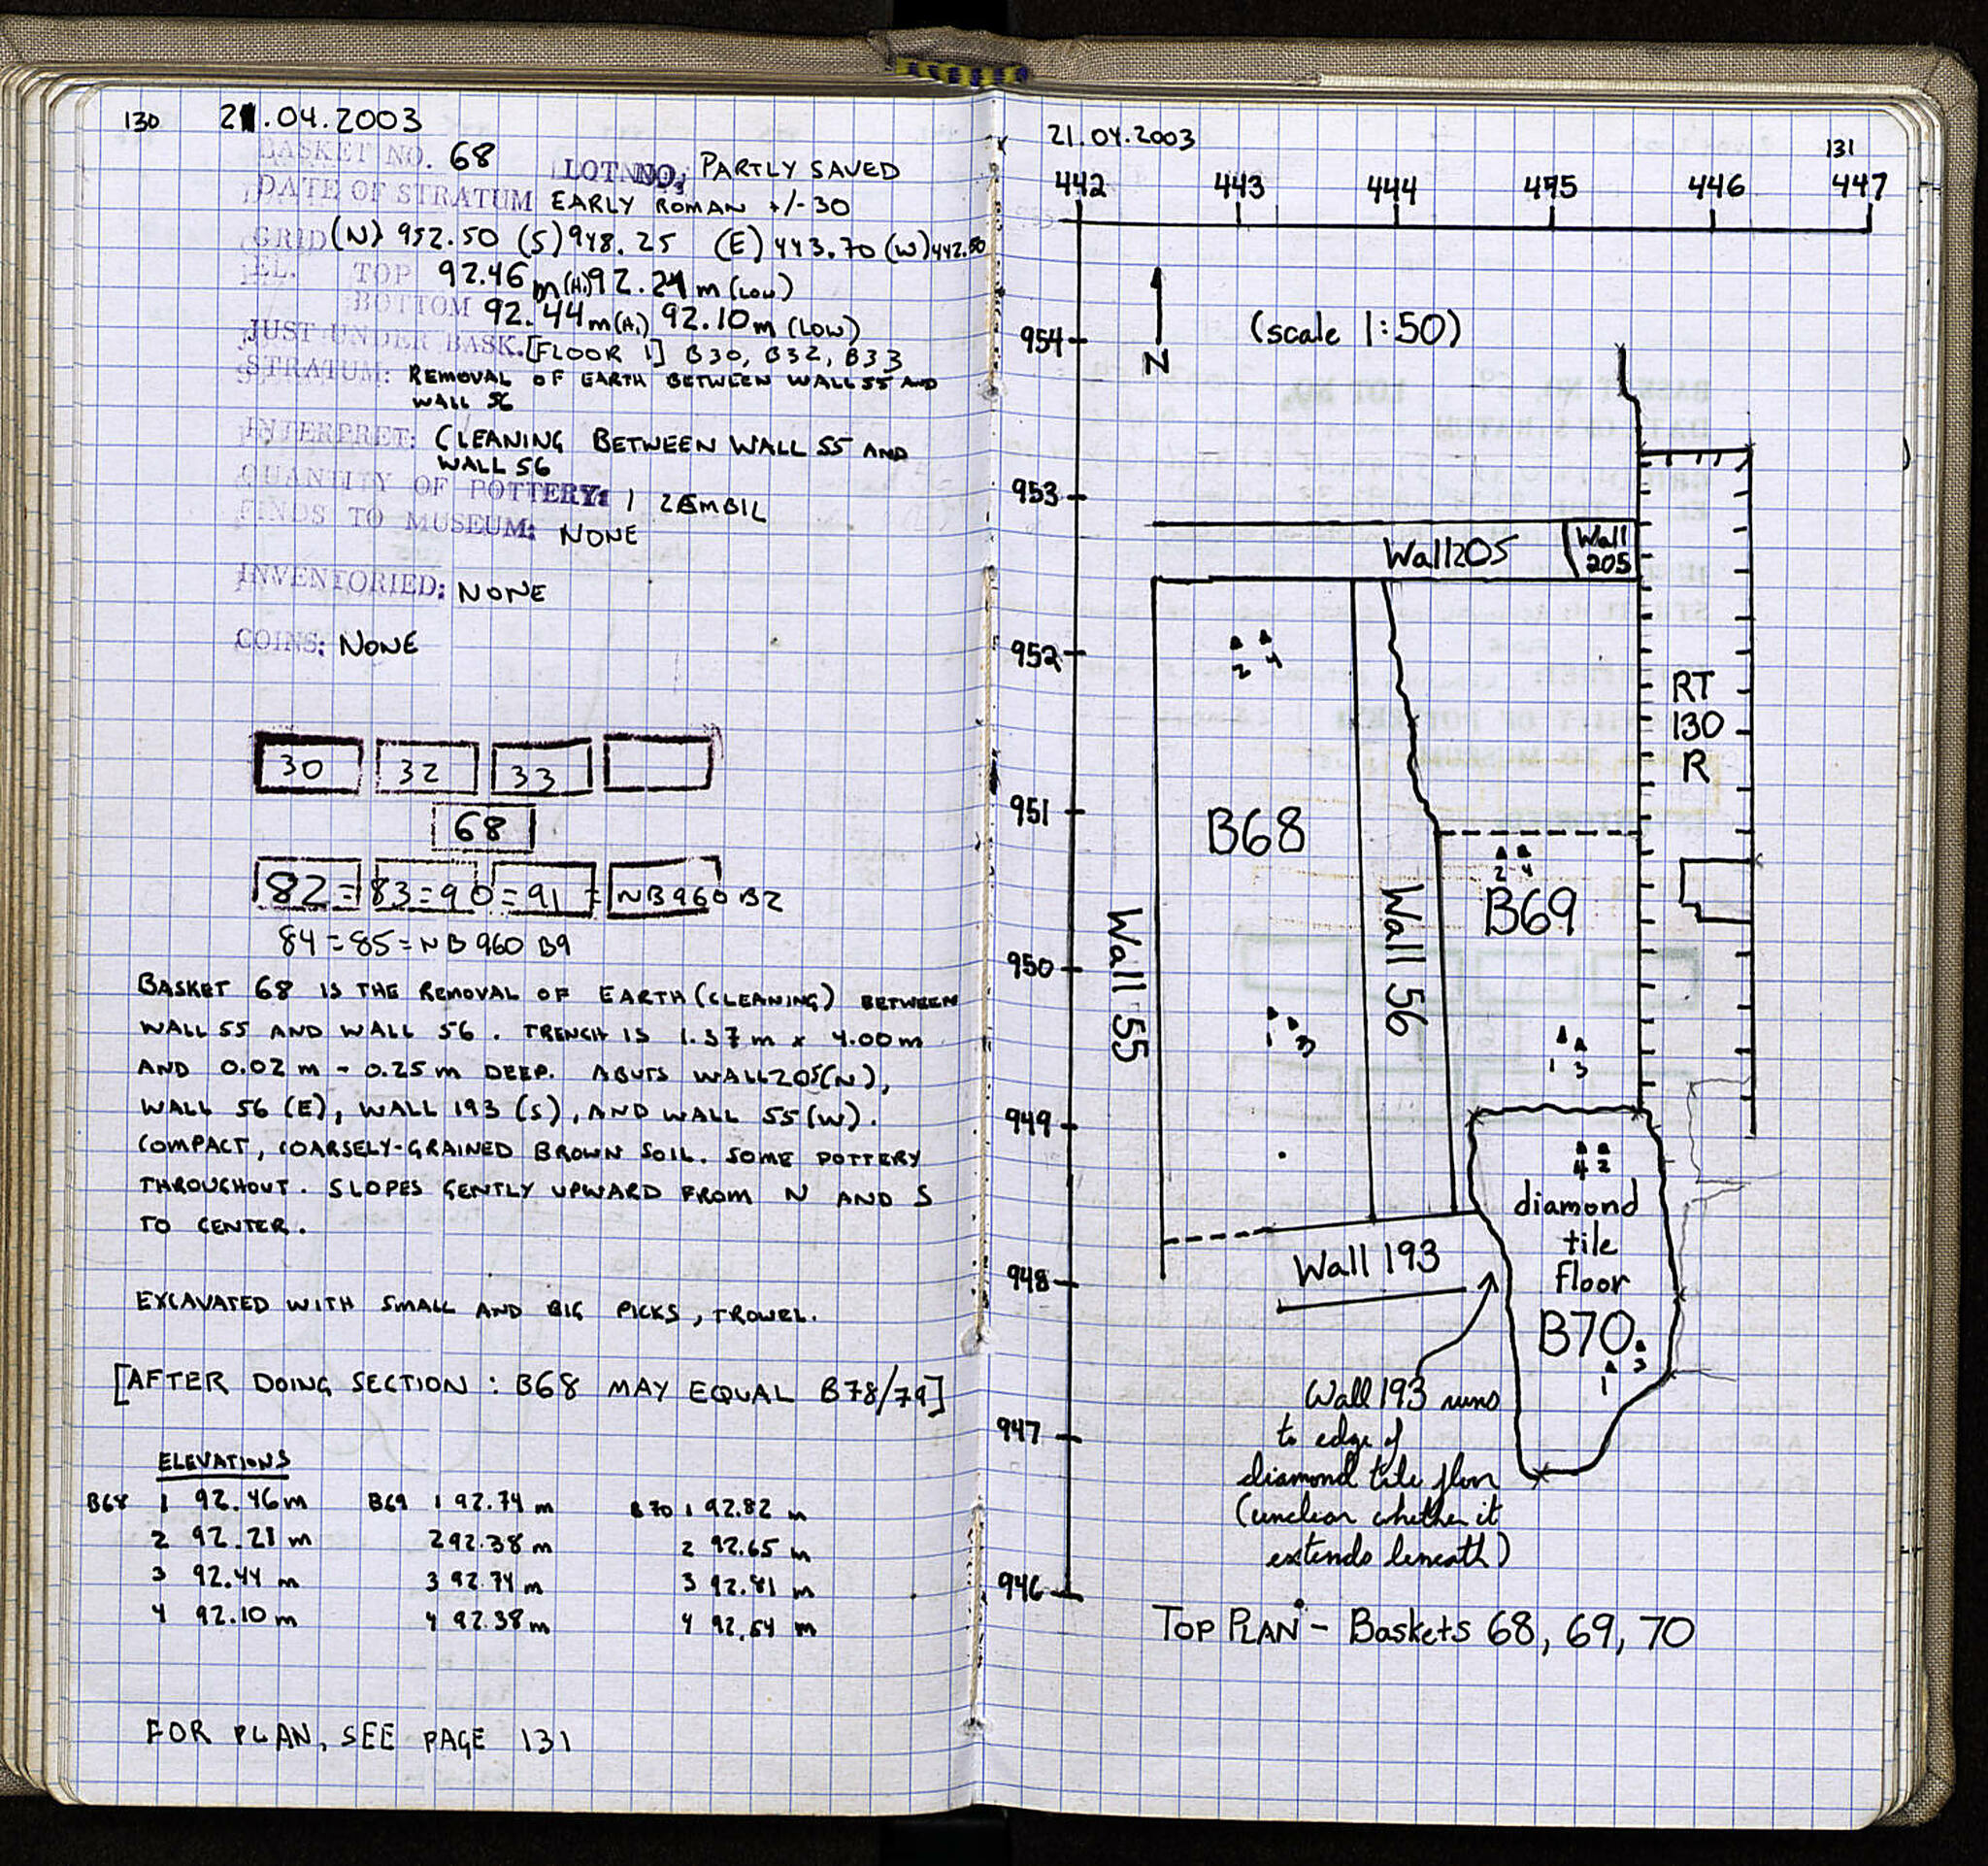 130 21.04.2003
BASKET NO. 68 LOT NO. PARTLY SAVED
DATE OF STRATUM EARLY ROMAN +/-30
GRID (N) 952.50 (S) 948.25 (E) 443.70 (W) 442.50
EL. TOP 92.46 m (HI) 92.21 m (LOW)
BOTTOM 92.44 m (HI) 92.10 m (LOW)
JUST UNDER BASK. [FLOOR 1] B30, B32, B33
STRATUM: REMOVAL OF EARTH BETWEEN WALL 55 AND
WALL 56
INTERPRET: CLEANING BETWEEN WALL 55 AND
WALL 56
QUANTITY OF POTTERY: 1 ZEMBIL
FINDS TO MUSEUM: NONE
INVENTORIED: NONE
COINS: NONE
30 32 33
68
82 = 83 = 90 = 91 = NB 960 B2
84 = 85 = NB 960 B9
BASKET 68 IS THE REMOVAL OF EARTH (CLEANING) BETWEEN
WALL 55 AND WALL 56. TRENCH IS 1.37 m x 4.00 m
AND 0.02 m - 0.25 m DEEP. ABUTS WALL 205 (N),
WALL 56 (E), WALL 193 (S), AND WALL 55 (W).
COMPACT, COARSELY-GRAINED BROWN SOIL. SOME POTTERY
THROUGHOUT. SLOPES GENTLY UPWARD FROM N AND S
TO CENTER.
EXCAVATED WITH SMALL AND BIG PICKS, TROWEL.
[AFTER DOING SECTION: B68 MAY EQUAL B78/79]
ELEVATIONS
B68 1 92.46 m B69 1 92.74 m B70 1 92.82 m
2 92.21 m 2 92.38 m 2 92.65 m
3 92.44 m 3 92.74 m 3 92.81 m
4 92.10 m 4 92.38 m 4 92.64 m
FOR PLAN, SEE PAGE 131
21.04.2003 131
442 443 444 445 446 447
954
(scale 1:50)
N
953
Wall 205 Wall
205
952
2 4
RT
130
R
951
B68
2 4
B69
Wall 55
Wall 56
950
1 3
1 3
949
4 2
diamond
tile
floor
B70
3
1
Wall 193
948
Wall 193 runs
to edge of
diamond tile floor
(unclear whether it
extends beneath)
947
946
TOP PLAN - Baskets 68, 69, 70